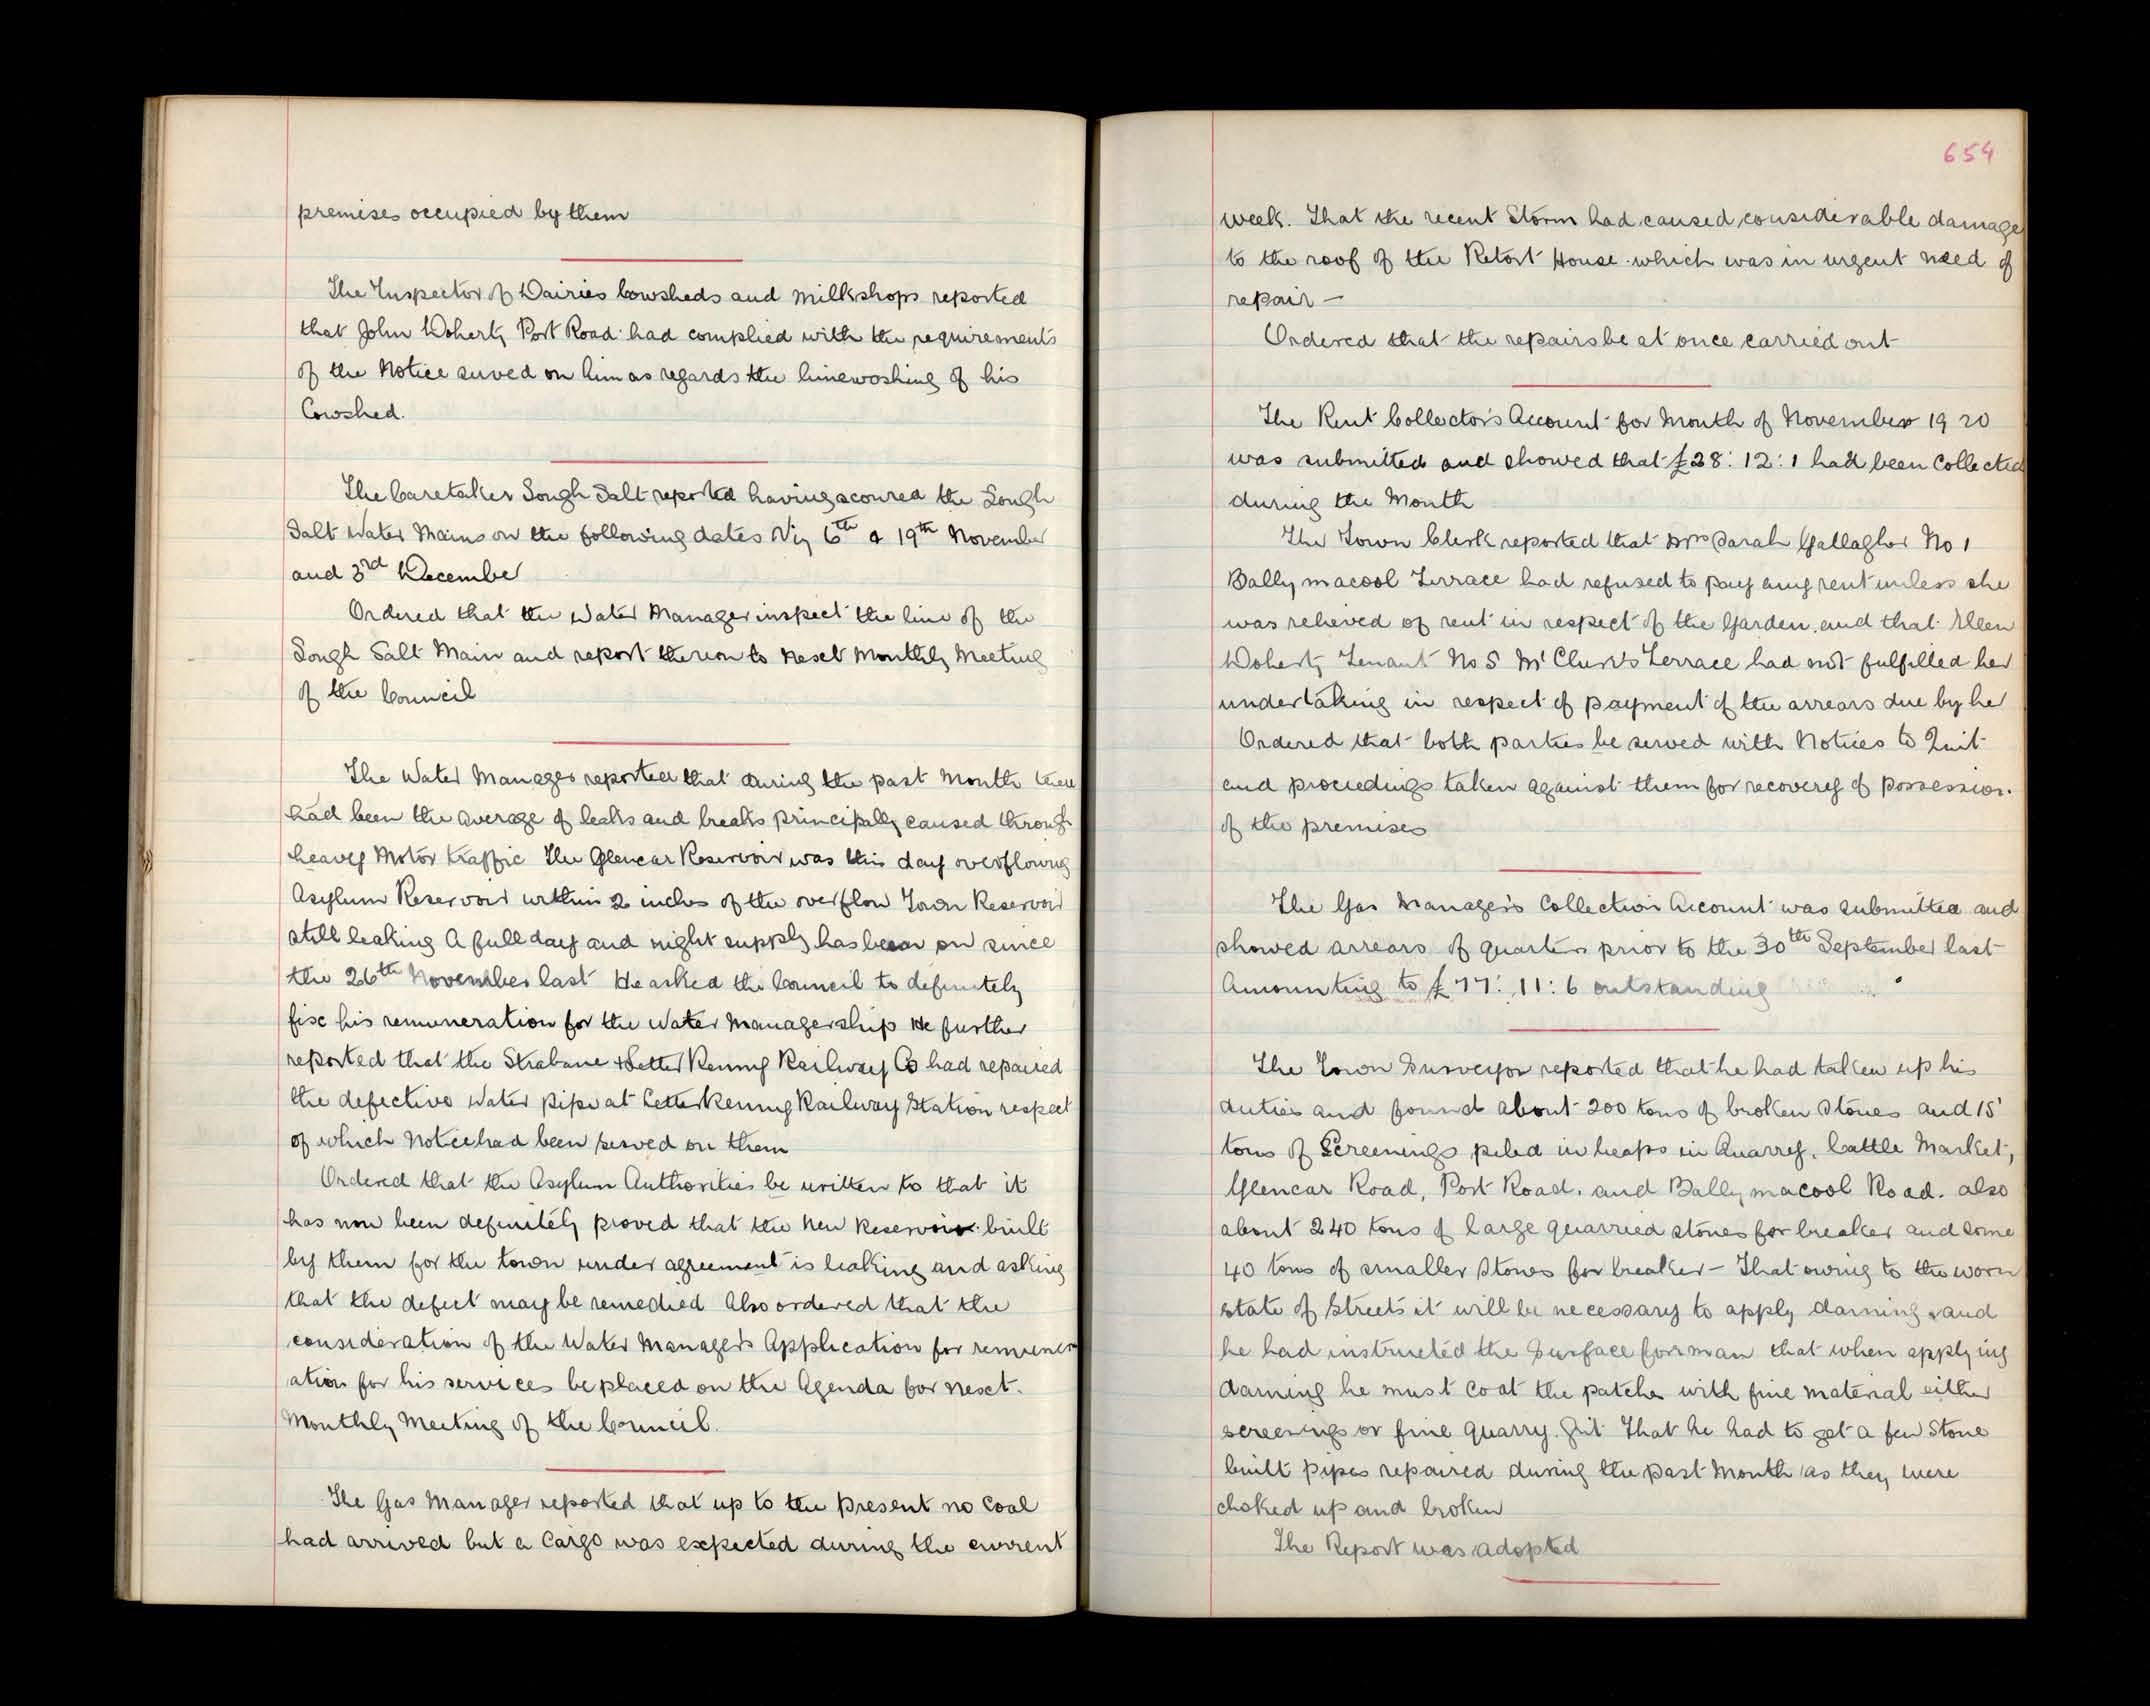 premises occupied by them
The Inspector of Dairies Cowsheds and Milkshops reported
that John Doherty Port Road had complied with the requirements
of the Notice served on him as regards the limewashing of his
Cowshed.
The Caretaker Lough Salt reported having scoured the Lough
Salt Water Mains on the following dates Viz 6th & 19th November
and 3rd December
Ordered that the Water Manager inspect the line of the
Lough Salt Main and report thereon to next Monthly Meeting
of the Council
The Water Manager reported that during the past Month there
had been the average of leaks and breaks principally caused through
heavy Motor traffic The Glencar Reservoir was this day overflowing
Asylum Reservoir within 2 inches of the overflow Town Reservoir
still leaking A full day and night supply has been on since
the 26th November last He asked the Council to definitely
fix his remuneration for the Water Managership He further
reported that the Strabane & Letterkenny Railway Co had repaired
the defective Water pipe at Letterkenny Railway Station respect
of which Notice had been served on them
Ordered that the Asylum Authorities be written to that it
has now been definitely proved that the New Reservoir built
by them for the town under agreement is leaking and asking
that the defect may be remedied Also ordered that the
consideration of the Water Manager's Application for remuner
ation for his services be placed on the Agenda for next
Monthly Meeting of the Council.
The Gas Manager reported that up to the present no Coal
had arrived but a Cargo was expected during the current
654
week. That the recent Storm had caused considerable damage
to the roof of the Retort House which was in urgent need of
repair —
Ordered that the repairs be at once carried out
The Rent Collector's Account for Month of November 1920
was submitted and showed that £28:12:1 had been Collected
during the Month
The Town Clerk reported that Mrs Sarah Gallagher No 1
Ballymacool Terrace had refused to pay any rent unless she
was relieved of rent in respect of the Garden. and that Ellen
Doherty Tenant No 5 McClure's Terrace had not fulfilled her
undertaking in respect of payment of the arrears due by her
Ordered that both parties be served with Notices to Quit
and proceedings taken against them for recovery of possession
of the premises
The Gas Manager's Collection Account was submitted and
showed arrears of quarters prior to the 30th September last
Amounting to £77:11:6 outstanding
The Town Surveyor reported that he had taken up his
duties and found about 200 tons of broken Stones and 15
tons of Screenings piled in heaps in Quarry, Cattle Market,
Glencar Road, Port Road, and Ballymacool Road. also
about 240 tons of large quarried stones for breaker and some
40 tons of smaller Stones for breaker – That owing to the worn
state of Streets it will be necessary to apply darning and
he had instructed the Surface foreman that when applying
darning he must coat the patches with fine material either
screenings or fine quarry grit That he had to get a few Stone
built pipes repaired during the past Month as they were
choked up and broken
The Report was adopted